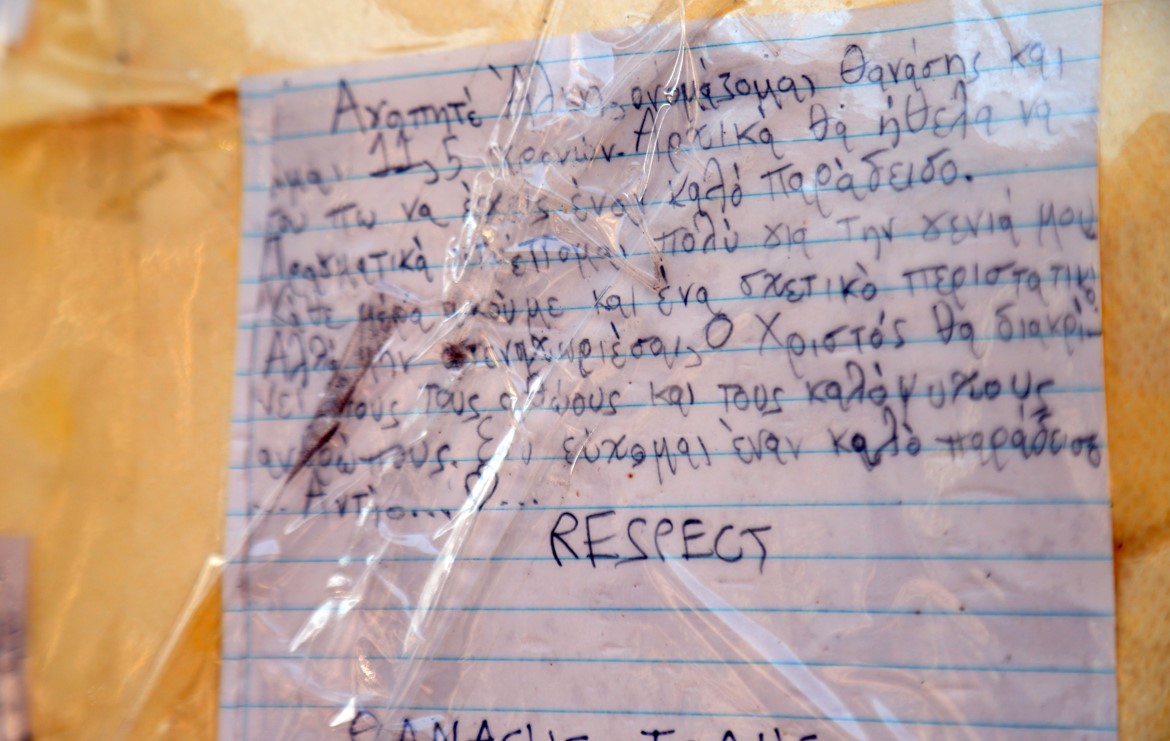 Αγαπητέ Άλκη, ονομάζομαι Θανάσης και
μαι 11,5 χρονών. Αρχικά θα ήθελα να
σου πω να έχεις έναν καλό παράδεισο.
Πραγματικά πολύ για την γενιά μου
Κάθε μέρα ακούμε και ένα σχετικό περιστατικό
Αλλά μην στεναχωριέσαι, Ο Χριστός θα διακρί-
νει τους και τους καλόψυχους
ανθρώπους. εύχομαι έναν καλό παράδεισο
... Αντίο... ...
RESPECT
ΘΑΝΑΣΗΣ